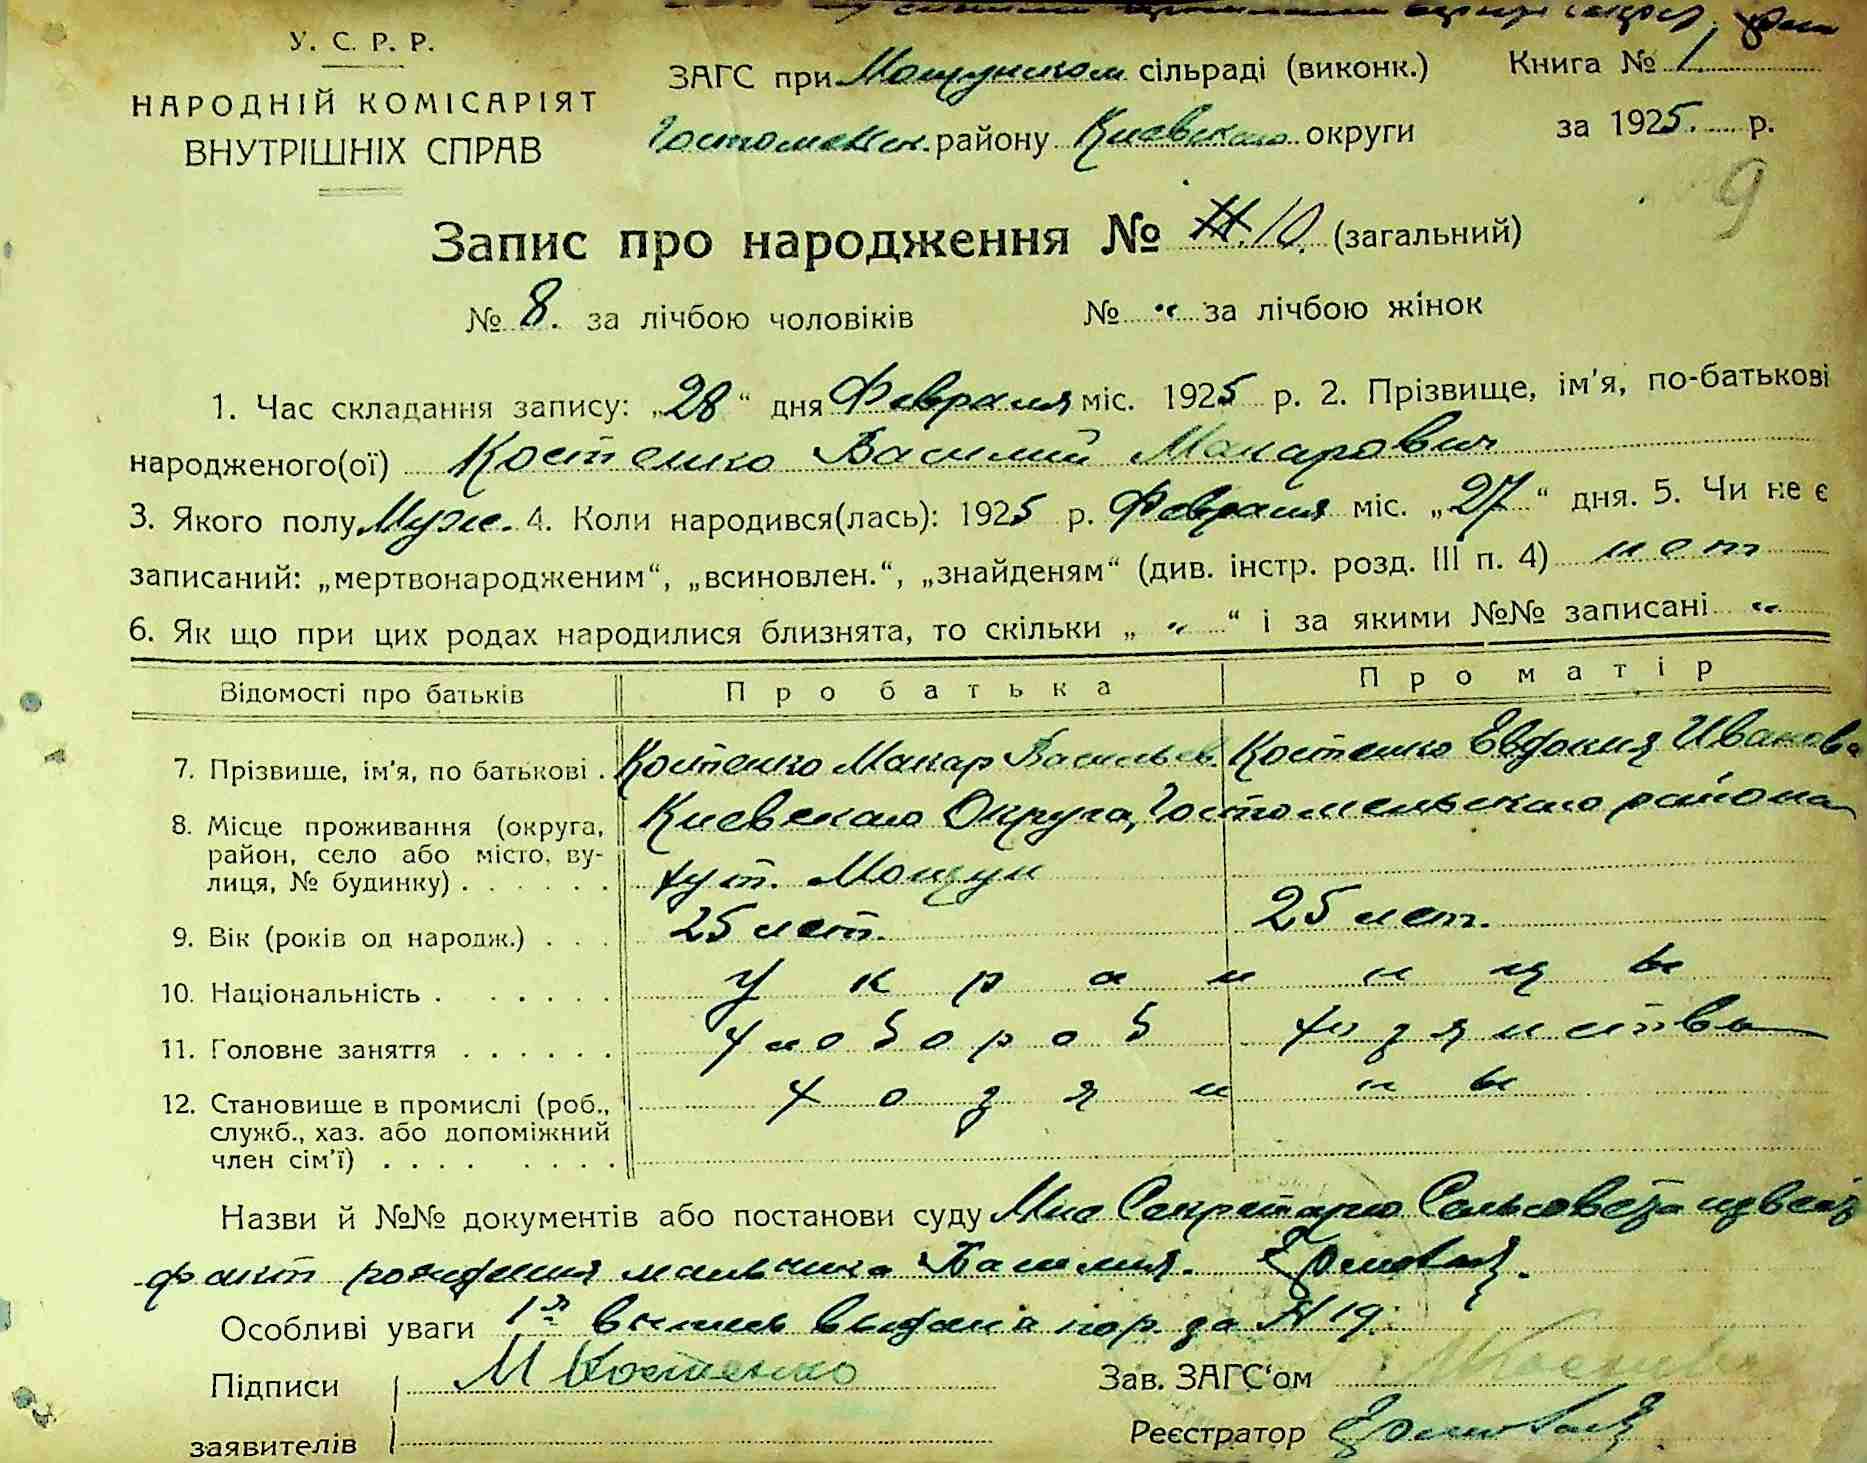 У. С. Р. Р.
НАРОДНІЙ КОМІСАРІЯТ
ВНУТРІШНІХ СПРАВ
ЗАГС при Мощунском сільраді (виконк.)
Книга № 1
Гостомельск. району Киевскаго округи
за 1925 р.
9
Запис про народження № 10. (загальний)
№ 8. за лічбою чоловіків № „ за лічбою жінок
1. Час складання запису: „28“ дня Февраля міс. 1925 р. 2. Прізвище, ім'я, по-батькові
народженого(ої) Костенко Василий Макарович
3. Якого полу Муж. 4. Коли народився(лась): 1925 р. Февраля міс. „27“ дня. 5. Чи не є
записаний: „мертвонародженим“, „всиновлен.“, „знайденям“ (див. інстр. розд. III п. 4) нет
6. Як що при цих родах народилися близнята, то скільки „ „ “ і за якими №№ записані „
Відомості про батьків Про батька Про матір
7. Прізвище, ім'я, по батькові . Костенко Макар Васильев. Костенко Евдокия Иванова
8. Місце проживання (округа, Киевскаго Округа, Гостомельскаго района
район, село або місто, ву-
лиця, № будинку) . . . . . . хут. Мощун
9. Вік (років од народж.) . . . 25 лет. 25 лет.
10. Національність . . . . . . . украинцы
11. Головне заняття . . . . . . хлебороб хозяйства
12. Становище в промислі (роб., хозяины
служб., хаз. або допоміжний
член сім'ї) . . . . . . . .
Назви й №№ документів або постанови суду Мне Секретарю Сельсовета извест
факт рождения мальчика Василия.
Особливі уваги 1я выпись выдана под за № 19.
Підписи М Костенко Зав. ЗАГС'ом
заявителів Реєстратор